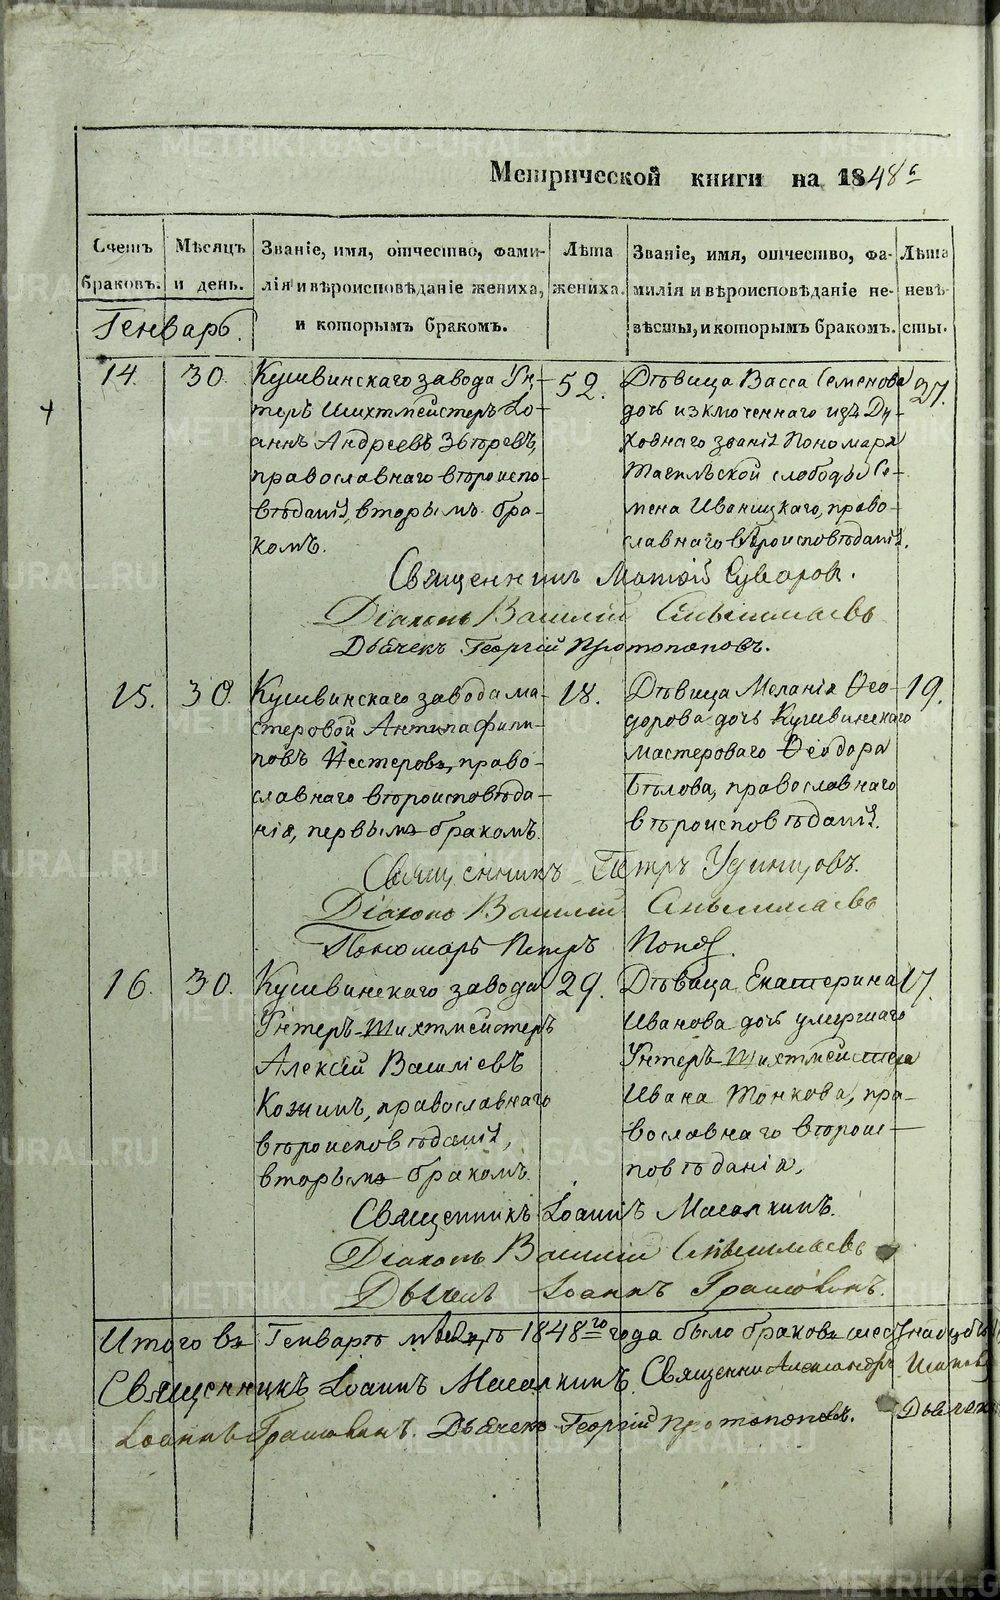 Метрической книги на 1848 г
Счетъ браковъ.
Мѣсяцъ и день.
Званіе, имя, отчество, фами-
лія и вѣроисповѣданіе жениха,
и которымъ бракомъ.
Лѣта жениха.
Званіе, имя, отчество, фа-
милія и вѣроисповѣданіе не-
вѣсты, и которымъ бракомъ.
Лѣта невѣ-
сты.
Генварь.
14.
30.
Кушвинскаго завода Ун-
теръ Шихтмейстеръ Іо-
аннъ Андреевъ
православнаго вѣроиспо-
вѣданія, вторымъ бра-
комъ.
52.
Дѣвица Васса Семенова
дочь изключеннаго изъ Ду-
ховнаго званія Пономаря
Тагильской слободы Се-
мена Иваницкаго, право-
славнаго вѣроисповѣданія.
27.
Священникъ Матѳій Суваровъ.
Діаконъ Василій
Дьячекъ Георгій Протопоповъ.
15.
30.
Кушвинскаго завода ма-
стеровой Антипа Филип-
повъ Нестеровъ, право-
славнаго вѣроисповѣда-
нія, первымъ бракомъ.
18.
Дѣвица Меланія Ѳео-
дорова дочь Кушвинскаго
мастероваго Ѳеодора
Бѣлова, православнаго
вѣроисповѣданія.
19.
Священникъ Петръ Удинцовъ.
Діаконъ Василій
Пономарь Петръ Поповъ
16.
30.
Кушвинскаго завода
Унтеръ-Шихтмейстеръ
Алексій Василіевъ
Кожинъ, православнаго
вѣроисповѣданія,
вторымъ бракомъ.
29.
Дѣвица Екатерина
Иванова дочь умершаго
Унтеръ-Шихтмейстера
Ивана Тонкова, пра-
вославнаго вѣроис-
повѣданія.
17.
Священникъ Іоаннъ Масалкинъ.
Діаконъ Василій
Дьячекъ Іоаннъ
Итого въ Генварѣ мѣсяцѣ 1848го года было браковъ шестнадцать
Священникъ Іоаннъ Масалкинъ. Священникъ Александръ
Іоаннъ Дьячекъ Георгій Протопоповъ. Дьячекъ
METRIKI.GASO-URAL.RU